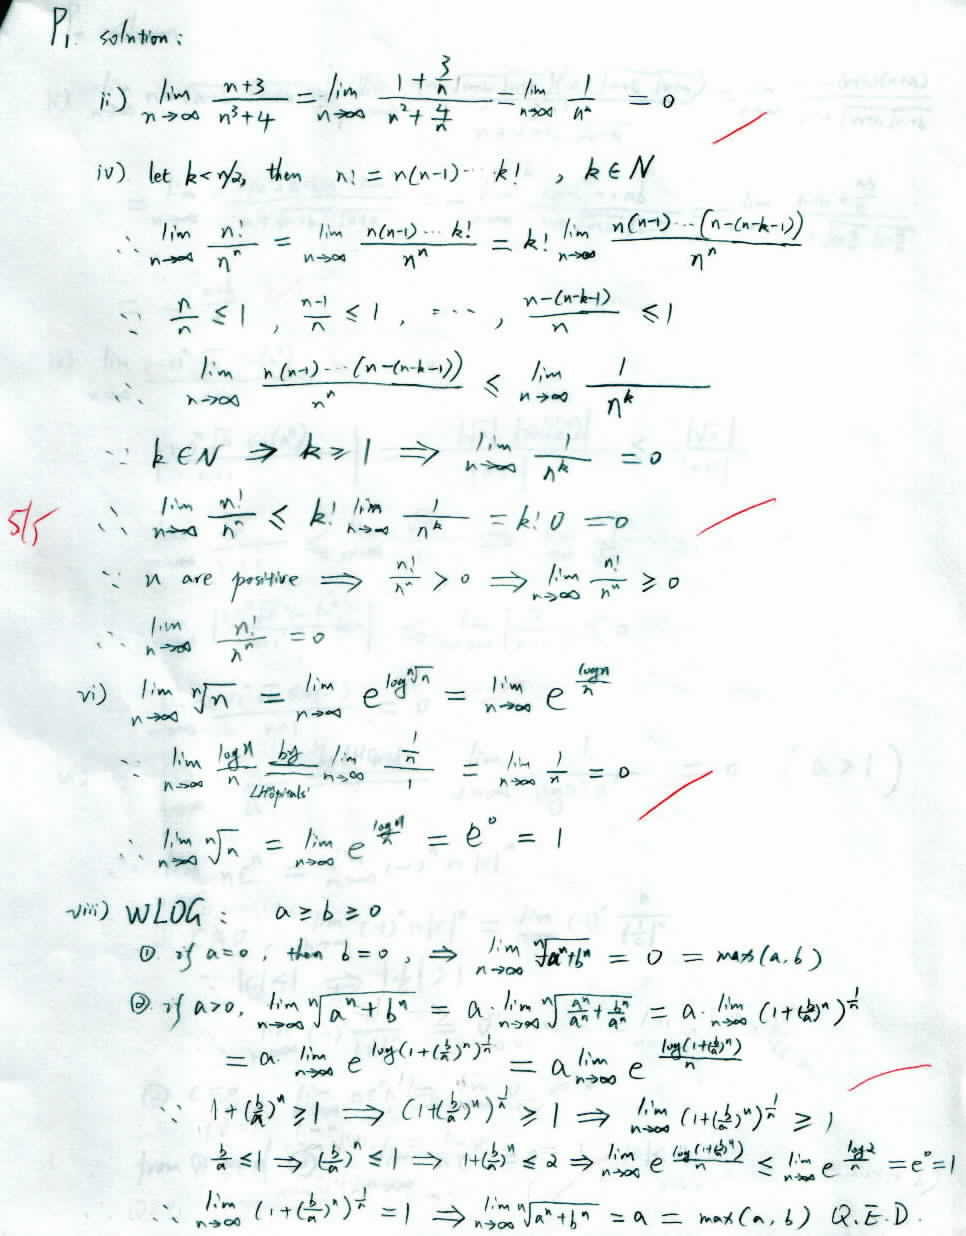 P1. solution:
ii) lim n→∞ (n+3)/(n³+4) = lim n→∞ (1+3/n)/(n²+4/n) = lim n→∞ 1/n² = 0
iv) let k<n/2, then n! = n(n-1)···k! , k∈N
∴ lim n→∞ n!/nⁿ = lim n→∞ n(n-1)···k!/nⁿ = k! lim n→∞ n(n-1)···(n-(n-k-1))/nⁿ
∵ n/n ≤ 1 , (n-1)/n ≤ 1 , ···· , (n-(n-k-1))/n ≤ 1
∴ lim n→∞ n(n-1)···(n-(n-k-1))/nⁿ ≤ lim n→∞ 1/n^k
∵ k∈N ⇒ k≥1 ⇒ lim n→∞ 1/n^k = 0
5/5
∴ lim n→∞ n!/nⁿ ≤ k! lim n→∞ 1/n^k = k! 0 = 0
∵ n are positive ⇒ n!/nⁿ > 0 ⇒ lim n→∞ n!/nⁿ ≥ 0
∴ lim n→∞ n!/nⁿ = 0
vi) lim n→∞ ⁿ√n = lim n→∞ e^(log ⁿ√n) = lim n→∞ e^(logn/n)
∵ lim n→∞ logn/n = by L'Hopitals' lim n→∞ (1/n)/1 = lim n→∞ 1/n = 0
∴ lim n→∞ ⁿ√n = lim n→∞ e^(logn/n) = e⁰ = 1
viii) WLOG: a ≥ b ≥ 0
① if a=0, then b=0, ⇒ lim n→∞ ⁿ√(aⁿ+bⁿ) = 0 = max(a,b)
② if a>0, lim n→∞ ⁿ√(aⁿ+bⁿ) = a·lim n→∞ ⁿ√(aⁿ/aⁿ+bⁿ/aⁿ) = a·lim n→∞ (1+(b/a)ⁿ)^(1/n)
= a·lim n→∞ e^(log(1+(b/a)ⁿ)^(1/n)) = a lim n→∞ e^(log(1+(b/a)ⁿ)/n)
∵ 1+(b/a)ⁿ ≥ 1 ⇒ (1+(b/a)ⁿ)^(1/n) ≥ 1 ⇒ lim n→∞ (1+(b/a)ⁿ)^(1/n) ≥ 1
b/a ≤ 1 ⇒ (b/a)ⁿ ≤ 1 ⇒ 1+(b/a)ⁿ ≤ 2 ⇒ lim n→∞ e^(log(1+(b/a)ⁿ)/n) ≤ lim n→∞ e^(log2/n) = e⁰ = 1
∴ lim n→∞ (1+(b/a)ⁿ)^(1/n) = 1 ⇒ lim n→∞ ⁿ√(aⁿ+bⁿ) = a = max(a,b) Q.E.D.